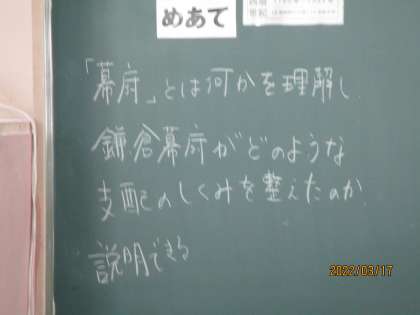 めあて
「幕府」とは何かを理解し
鎌倉幕府がどのような
支配のしくみを整えたのか
説明できる
2022/03/17